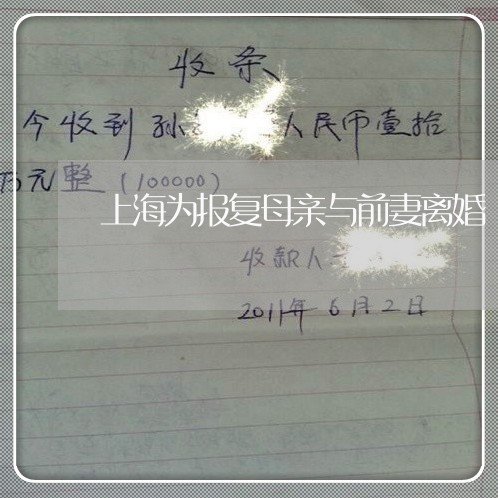 收条
今收到孙 人民币壹拾
万元整(100000)
上海为报复母亲与前妻离婚
收款人
2011年6月2日